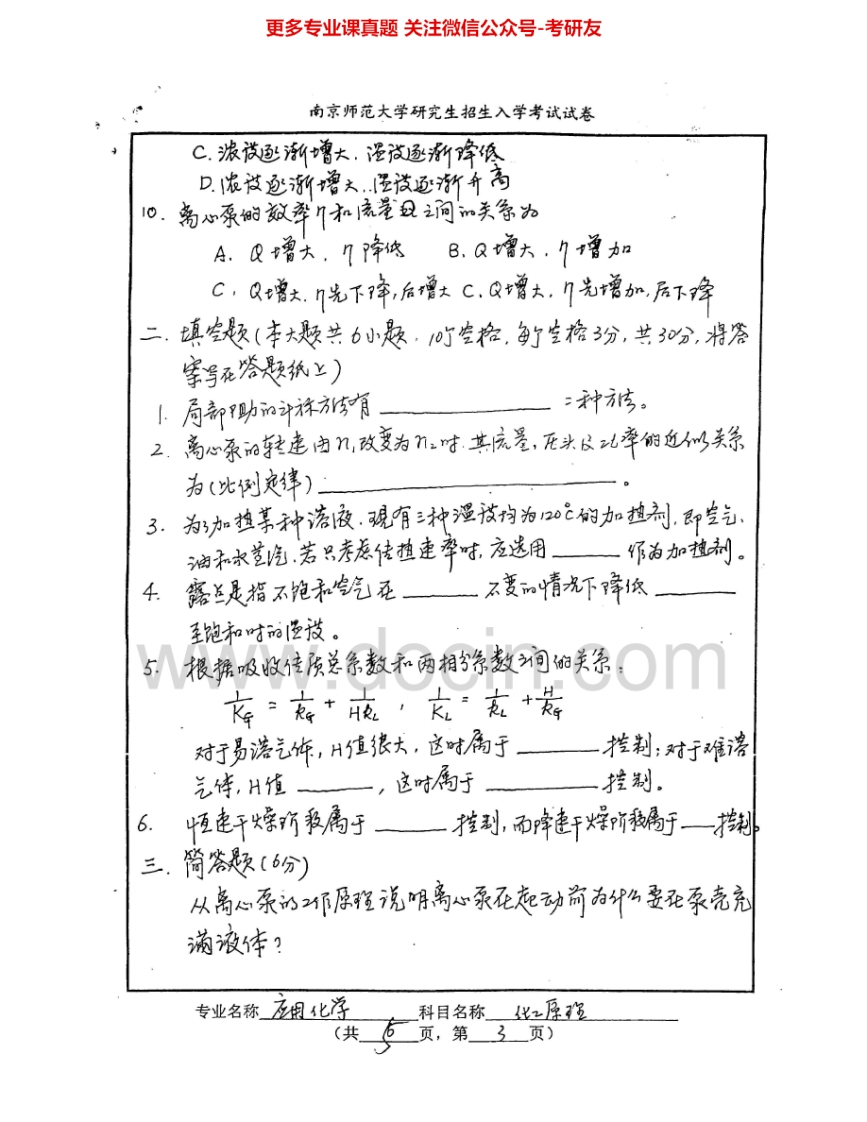 更多专业课真题 关注微信公众号-考研友
南京师范大学研究生招生入学考试试卷
C. 浓度逐渐增大. 温度逐渐降低
D. 浓度逐渐增大. 温度逐渐升高
10. 离心泵的效率η和流量Q之间的关系为
A. Q增大. η降低 B. Q增大. η增加
C. Q增大. η先下降,后增大 C. Q增大. η先增加,后下降
二. 填空题(本大题共6小题. 10个空格, 每个空格3分, 共30分, 将答
案写在答题纸上)
1. 局部阻力的计标方法有 二种方法。
2. 离心泵的转速由n₁改变为n₂时. 其流量, 压头及功率的近似关系
为(比例定律) 。
3. 为了加热某种溶液. 现有三种温度均为120℃的加热剂, 即空气、
油和水蒸汽. 若只考虑传热速率时, 应选用 作为加热剂。
4. 露点是指不饱和空气在 不变的情况下降低
至饱和时的温度。
www.docin.com
5. 根据吸收传质总系数和两相分系数之间的关系:
1/KG = 1/kG + 1/HkL , 1/KL = 1/kL + H/kG
对于易溶气体, H值很大, 这时属于 控制; 对于难溶
气体, H值 , 这时属于 控制。
6. 恒速干燥阶段属于 控制, 而降速干燥阶段属于 控制。
三. 简答题(6分)
从离心泵的工作原理说明离心泵在起动前为什么要在泵壳充
满液体?
专业名称 应用化学 科目名称 化工原理
(共 5 页, 第 3 页)